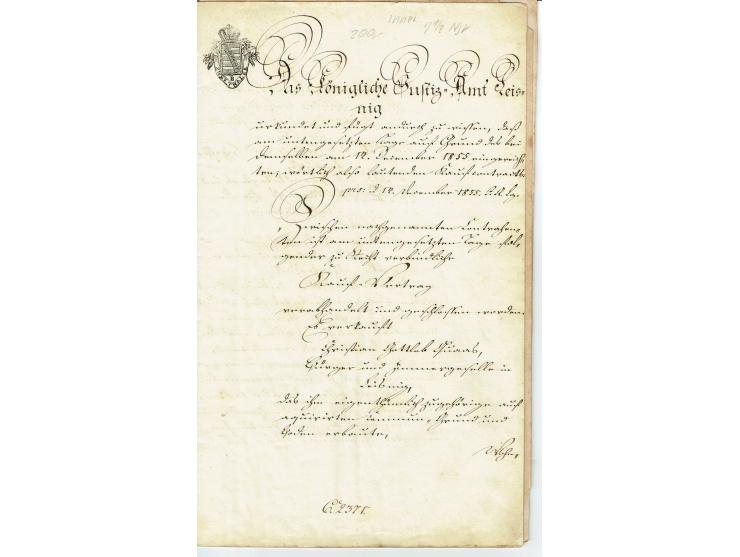 200,
7 1/2 Ngr
Das Königliche Justiz-Amt Leis-
nig
urkundet und fügt andurch zu wissen, daß
am untengesetzten Tage auf Grund des bei
demselben am 12. December 1855 eingereich-
ten, wörtlich also lautenden Kaufcontracts
12. December 1855.
Zwischen nachgenannten Contrahen-
ten ist am untengesetzten Tage fol-
gender zu Recht verbindliche
Kauf-Vertrag
verabhandelt und geschlossen worden.
Es verkauft
Christian Gottlob Quaas,
Bürger und Zimmergeselle in
Leisnig,
das ihm eigenthümlich zugehörige auf
aquirirten Commun-Grund und
Boden erbaute,
Wohn-
2371.